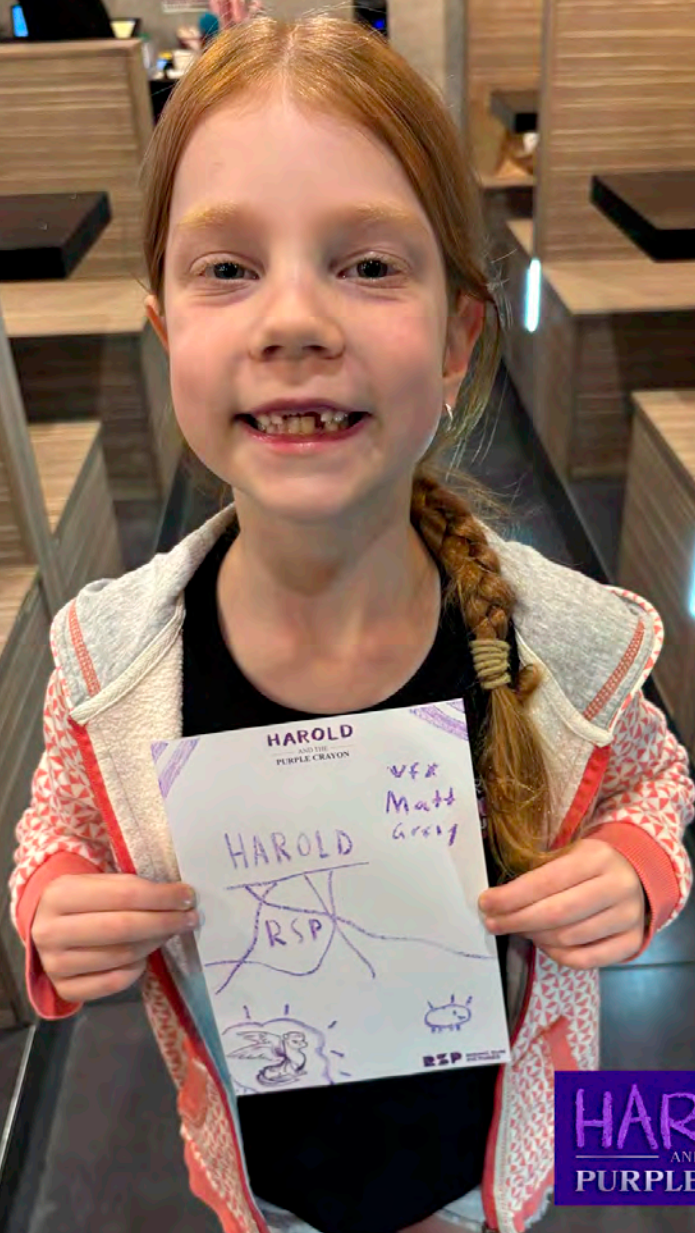 HAROLD
AND THE
PURPLE CRAYON
VFX
Matt
HAROLD
RSP
RSP
HAR
AN
PURPLE